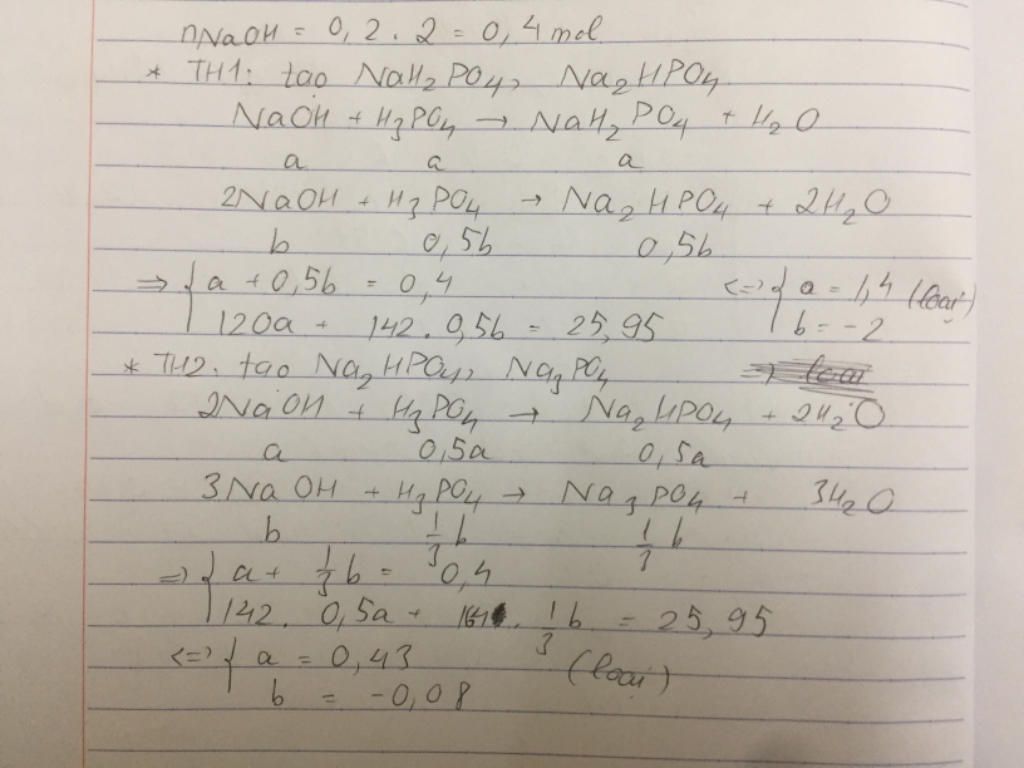 nNaOH = 0,2 . 2 = 0,4 mol
* TH1: tạo NaH₂PO₄, Na₂HPO₄
NaOH + H₃PO₄ → NaH₂PO₄ + H₂O
a a a
2NaOH + H₃PO₄ → Na₂HPO₄ + 2H₂O
b 0,5b 0,5b
⇒ { a + 0,5b = 0,4 <=> { a = 1,4 (loại)
120a + 142 . 0,5b = 25,95 b = -2
* TH2: tạo Na₂HPO₄, Na₃PO₄
2NaOH + H₃PO₄ → Na₂HPO₄ + 2H₂O
a 0,5a 0,5a
3NaOH + H₃PO₄ → Na₃PO₄ + 3H₂O
b 1/3 b 1/3 b
=> { a + 1/3 b = 0,4
142 . 0,5a + 164 . 1/3 b = 25,95
<=> { a = 0,43 (loại)
b = -0,08